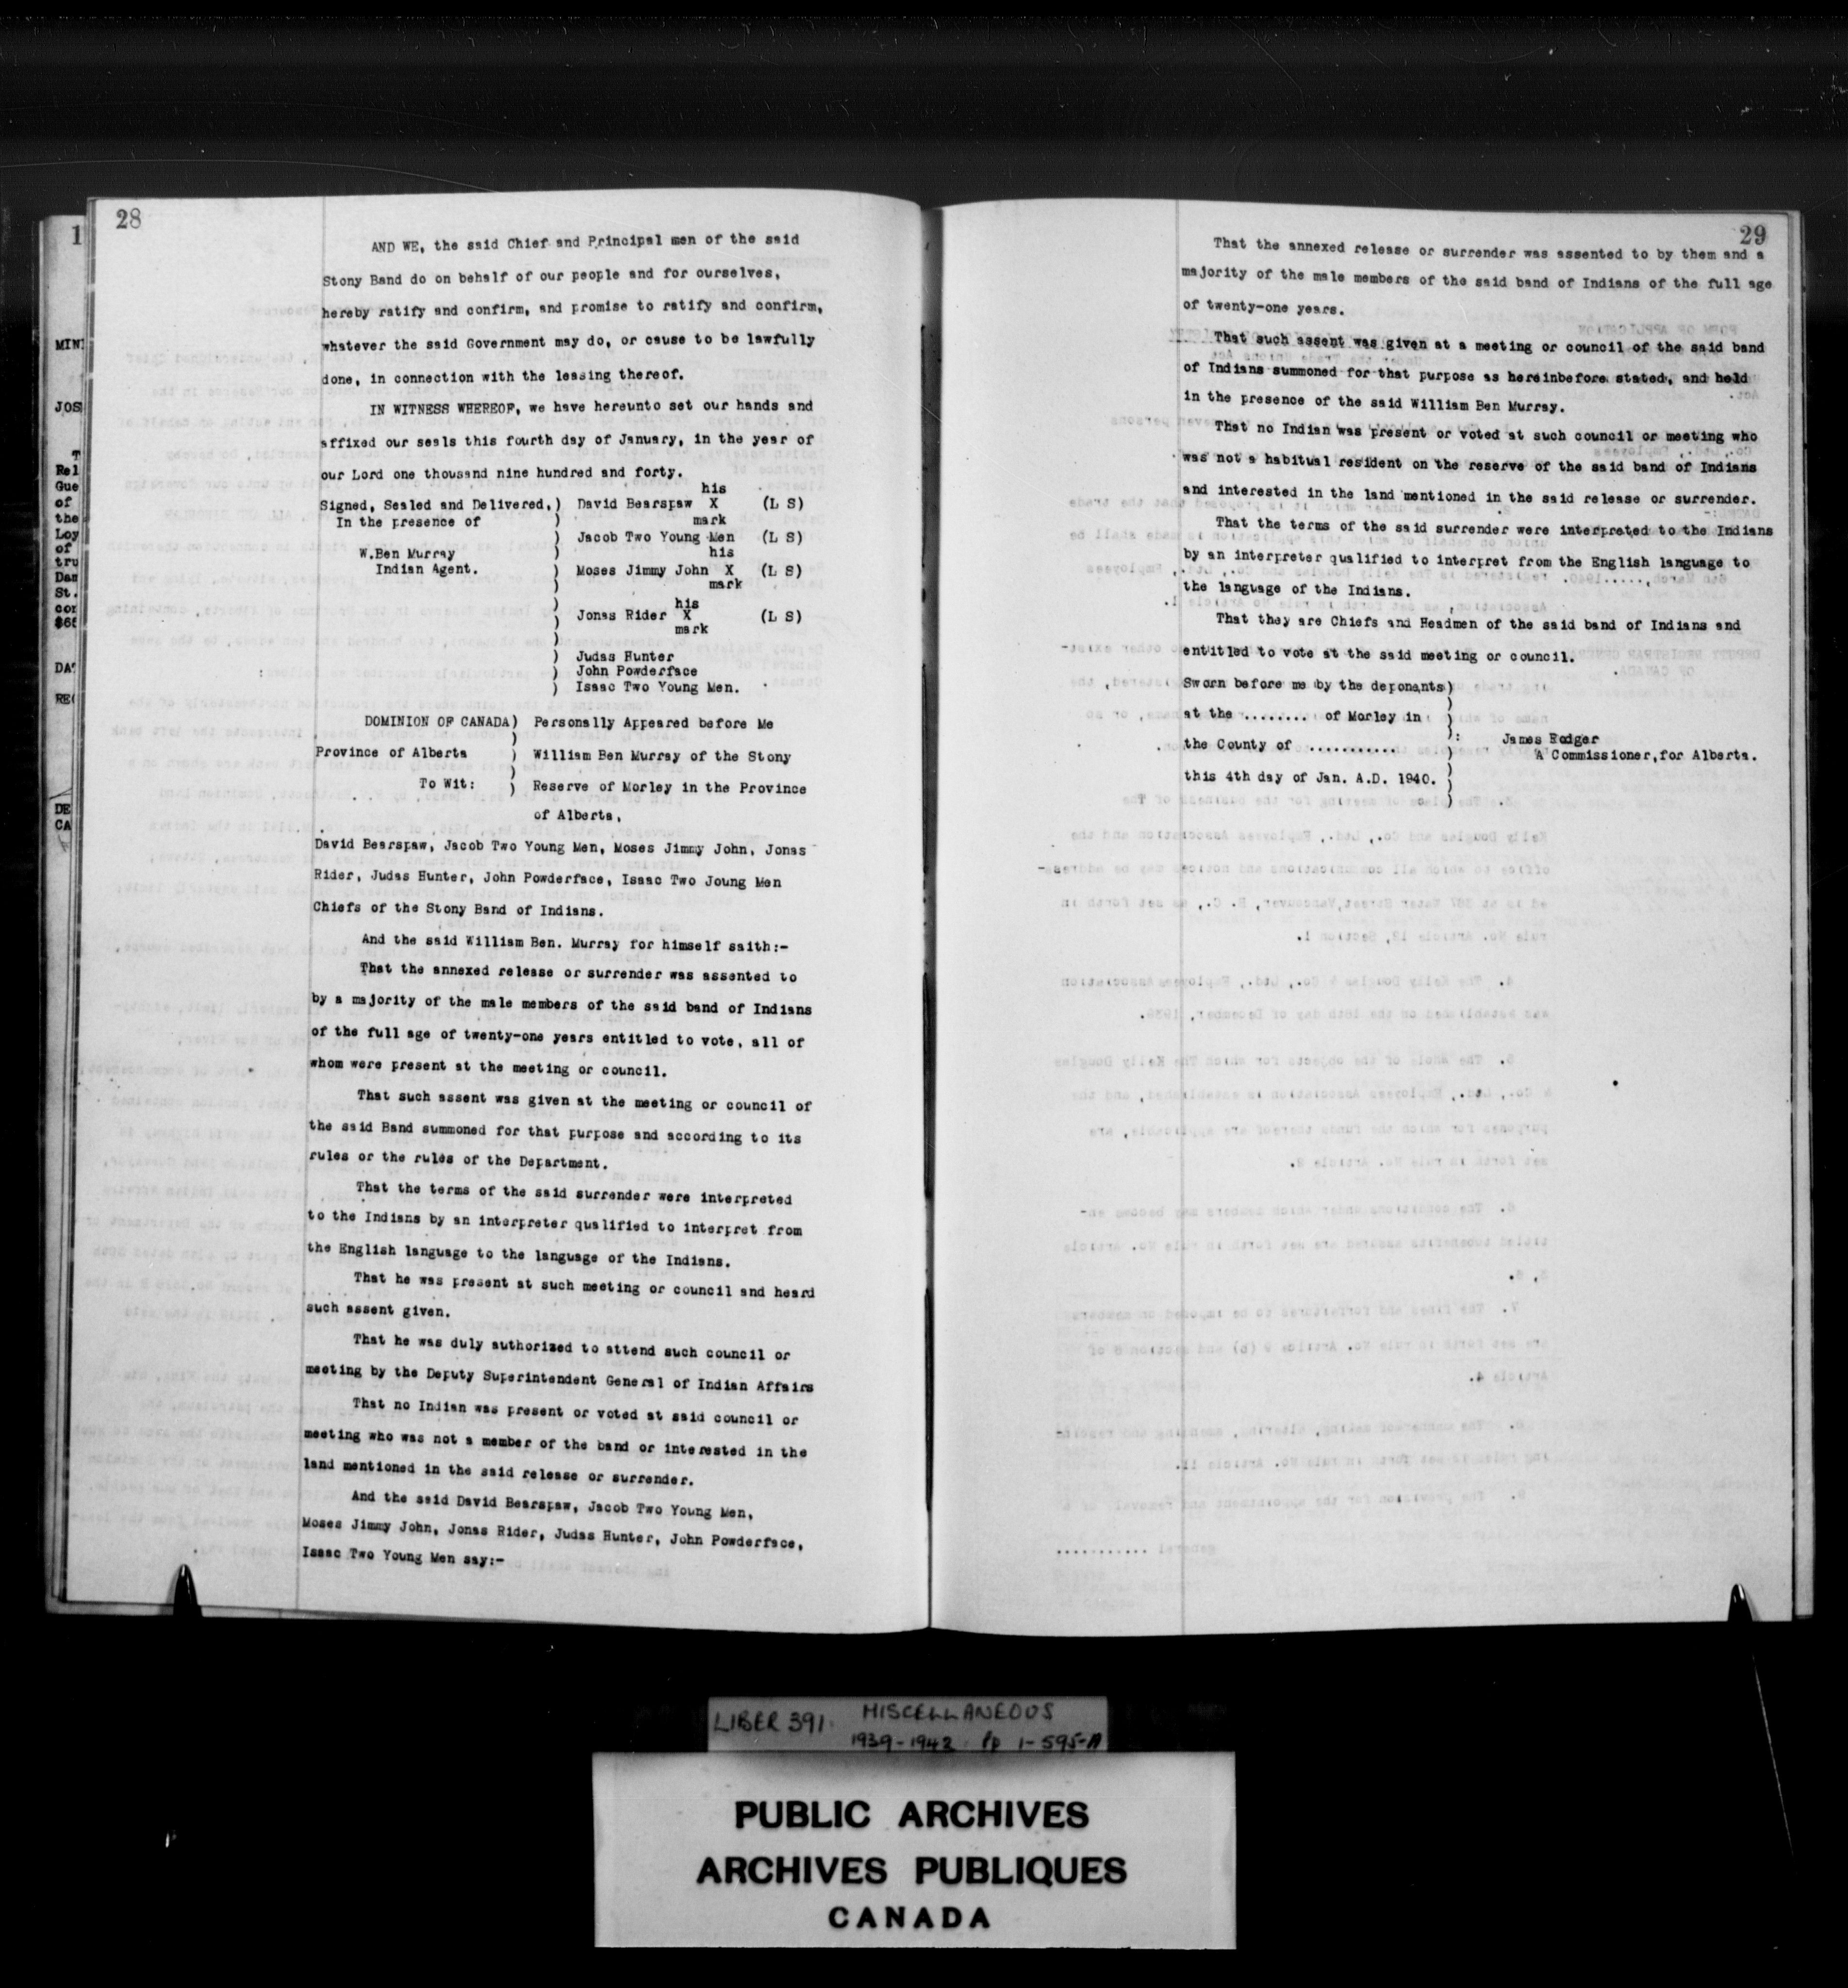 28
AND WE, the said Chief and Principal men of the said
Stony Band do on behalf of our people and for ourselves,
hereby ratify and confirm, and promise to ratify and confirm,
whatever the said Government may do, or cause to be lawfully
done, in connection with the leasing thereof.
IN WITNESS WHEREOF, we have hereunto set our hands and
affixed our seals this fourth day of January, in the year of
our Lord one thousand nine hundred and forty.
his
Signed, Sealed and Delivered,) David Bearspaw X (L S)
In the presence of ) mark
) Jacob Two Young Men (L S)
W.Ben Murray ) his
Indian Agent. ) Moses Jimmy John X (L S)
) mark
) his
) Jonas Rider X (L S)
) mark
)
) Judas Hunter
) John Powderface
) Isaac Two Young Men.
DOMINION OF CANADA) Personally Appeared before Me
)
Province of Alberta ) William Ben Murray of the Stony
)
To Wit: ) Reserve of Morley in the Province
of Alberta,
David Bearspaw, Jacob Two Young Men, Moses Jimmy John, Jonas
Rider, Judas Hunter, John Powderface, Isaac Two Joung Men
Chiefs of the Stony Band of Indians.
And the said William Ben. Murray for himself saith:-
That the annexed release or surrender was assented to
by a majority of the male members of the said band of Indians
of the full age of twenty-one years entitled to vote, all of
whom were present at the meeting or council.
That such assent was given at the meeting or council of
the said Band summoned for that purpose and according to its
rules or the rules of the Department.
That the terms of the said surrender were interpreted
to the Indians by an interpreter qualified to interpret from
the English language to the language of the Indians.
That he was present at such meeting or council and heard
such assent given.
That he was duly authorized to attend such council or
meeting by the Deputy Superintendent General of Indian Affairs
That no Indian was present or voted at said council or
meeting who was not a member of the band or interested in the
land mentioned in the said release or surrender.
And the said David Bearspaw, Jacob Two Young Men,
Moses Jimmy John, Jonas Rider, Judas Hunter, John Powderface,
Isaac Two Young Men say:-
29
That the annexed release or surrender was assented to by them and a
majority of the male members of the said band of Indians of the full age
of twenty-one years.
That such assent was given at a meeting or council of the said band
of Indians summoned for that purpose as hereinbefore stated, and held
in the presence of the said William Ben Murray.
That no Indian was present or voted at such council or meeting who
was not a habitual resident on the reserve of the said band of Indians
and interested in the land mentioned in the said release or surrender.
That the terms of the said surrender were interpreted to the Indians
by an interpreter qualified to interpret from the English language to
the language of the Indians.
That they are Chiefs and Headmen of the said band of Indians and
entitled to vote at the said meeting or council.
Sworn before me by the deponents)
)
at the ........ of Morley in )
): James Rodger
the County of ........... ) A Commissioner,for Alberta.
)
this 4th day of Jan. A.D. 1940. )
)
1
MIN
JOS
T
Rel
Gue
of
the
Loy
of
tru
Dan
St.
con
DA
RE
DE
CA
LIBER 391. MISCELLANEOUS
1939-1942. Pp 1-595-A
PUBLIC ARCHIVES
ARCHIVES PUBLIQUES
CANADA